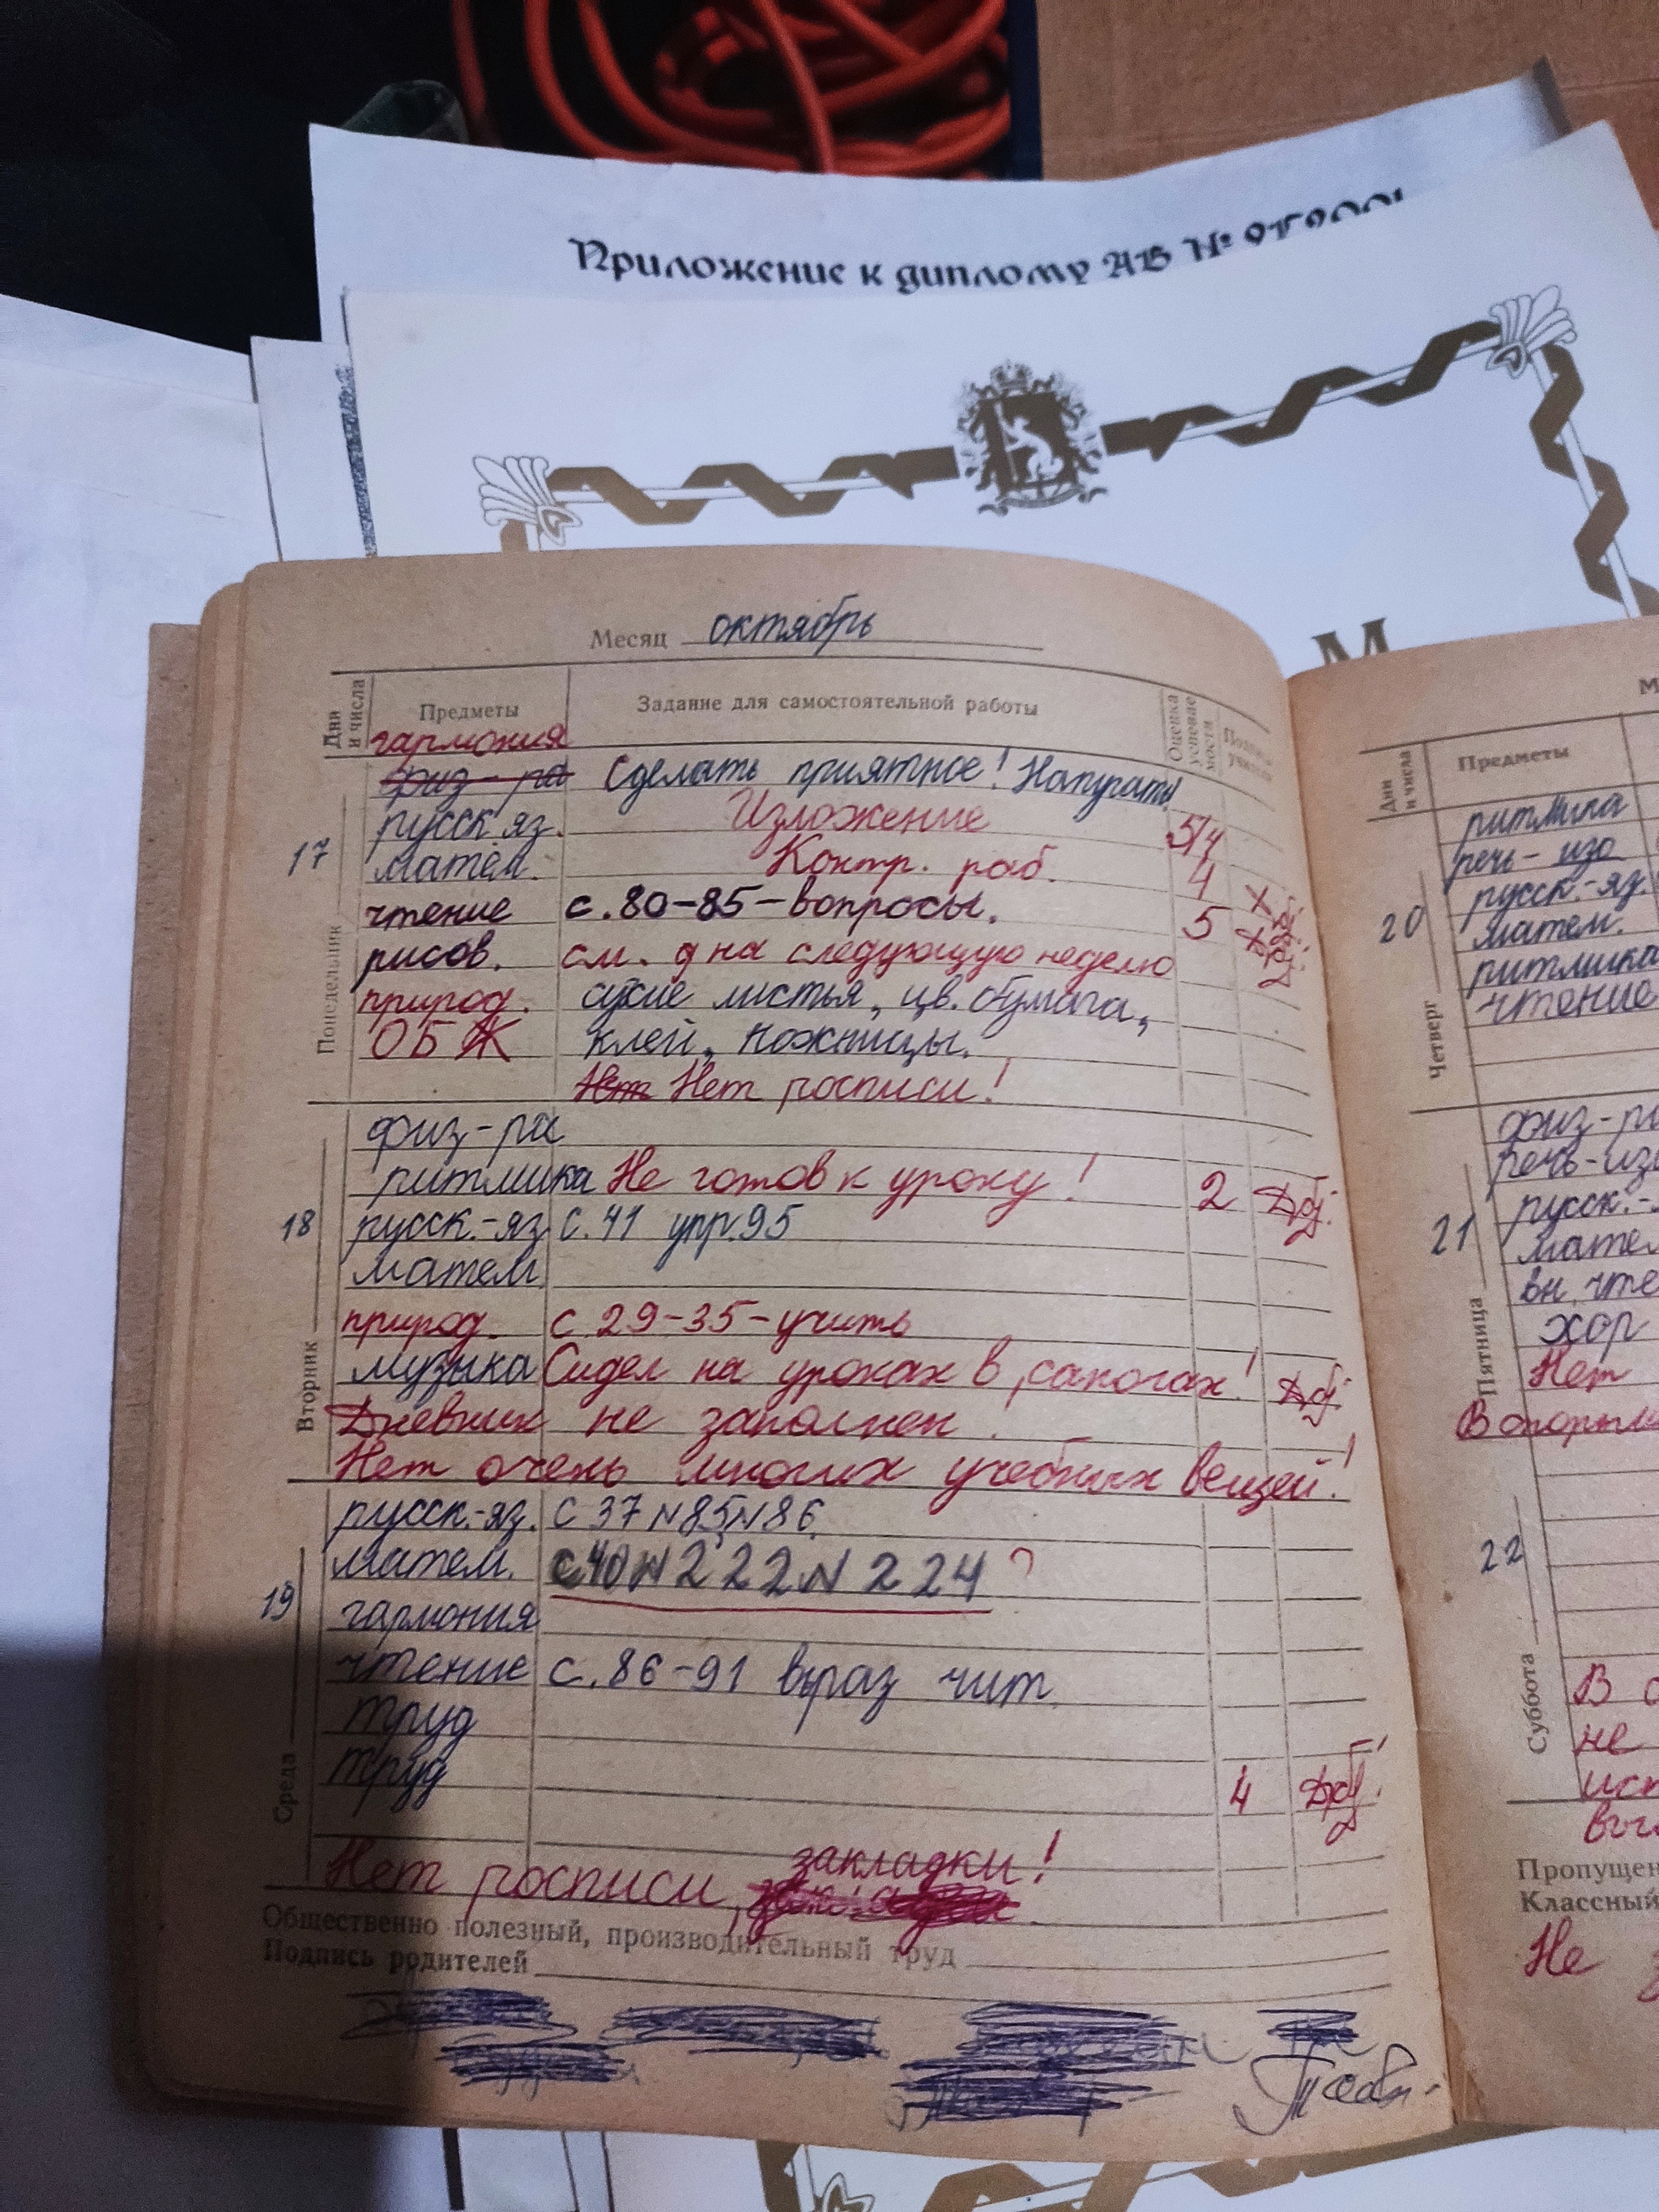 Приложение к диплому АВ №
М
Месяц октябрь
Дни и числа
Предметы
Задание для самостоятельной работы
Оценка успеваемости
Подпись учителя
гармония
физ-ра Сделать приятное!
русск яз. Изложение 5/4
17
матем. Контр. раб. 4
чтение с.80-85-вопросы. 5
рисов. см. д на следующую неделю
природ. сухие листья, цв. бумага,
ОБЖ клей, ножницы.
Понедельник
Нет Нет росписи!
физ-ра
ритмика Не готов к уроку! 2
18
русск.-яз с.41 упр.95
матем.
природ. с 29-35-учить
музыка Сидел на уроках в сапогах!
Вторник
Дневник не заполнен.
Нет очень многих учебных вещей!
русск.-яз. с 37 N85, N86.
матем. с40 N 222 N 224 ?
19
гармония
чтение с. 86-91 выраз чит.
труд
труд 4
Среда
Нет росписи, закладки!
Общественно полезный, производительный труд
Подпись родителей
М
Дни и числа
Предметы
ритмика
речь-изо
русск.-яз.
20
матем.
ритмика
чтение
Четверг
физ-ра
речь-изо
русск.-
21
матем
вн. чте
хор
Пятница
Нет
22
Суббота
В
не
Пропущен
Классный
Не